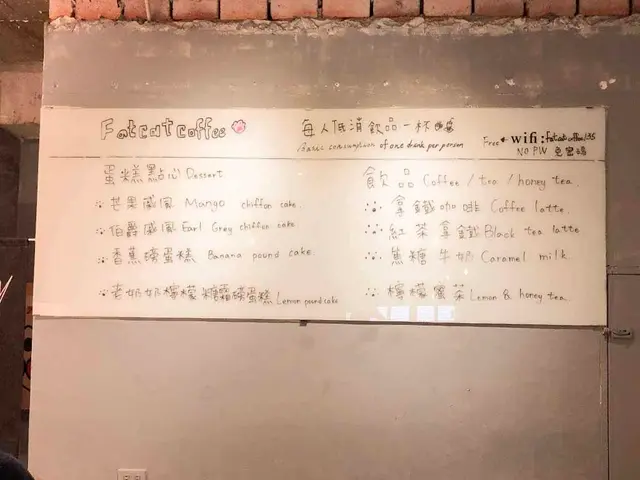 Fatcatcoffee
每人低消飲品一杯
Basic consumption of one drink per person
Free wifi: fatcatcoffee
No PW 免密碼
蛋糕點心 Dessert
芒果戚風 Mango chiffon cake.
伯爵戚風 Earl Grey chiffon cake
香蕉磅蛋糕 Banana pound cake.
老奶奶檸檬糖霜磅蛋糕 Lemon pound cake
飲品 Coffee / tea / honey tea.
拿鐵咖啡 Coffee latte.
紅茶拿鐵 Black tea latte
焦糖牛奶 Caramel milk.
檸檬蜜茶 Lemon & honey tea